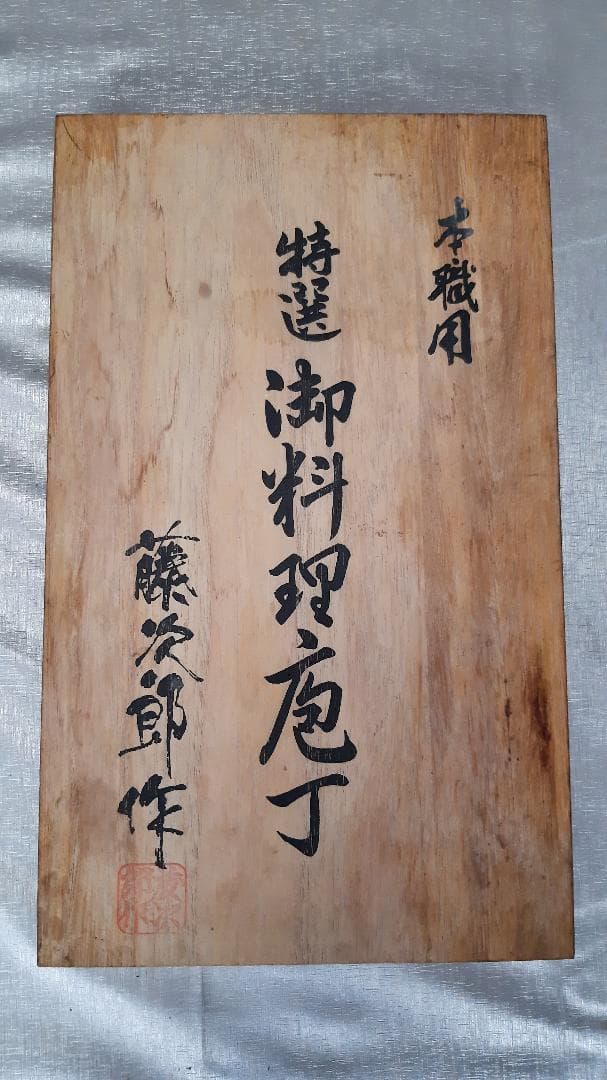 本職用
特選 御料理庖丁
藤次郎作